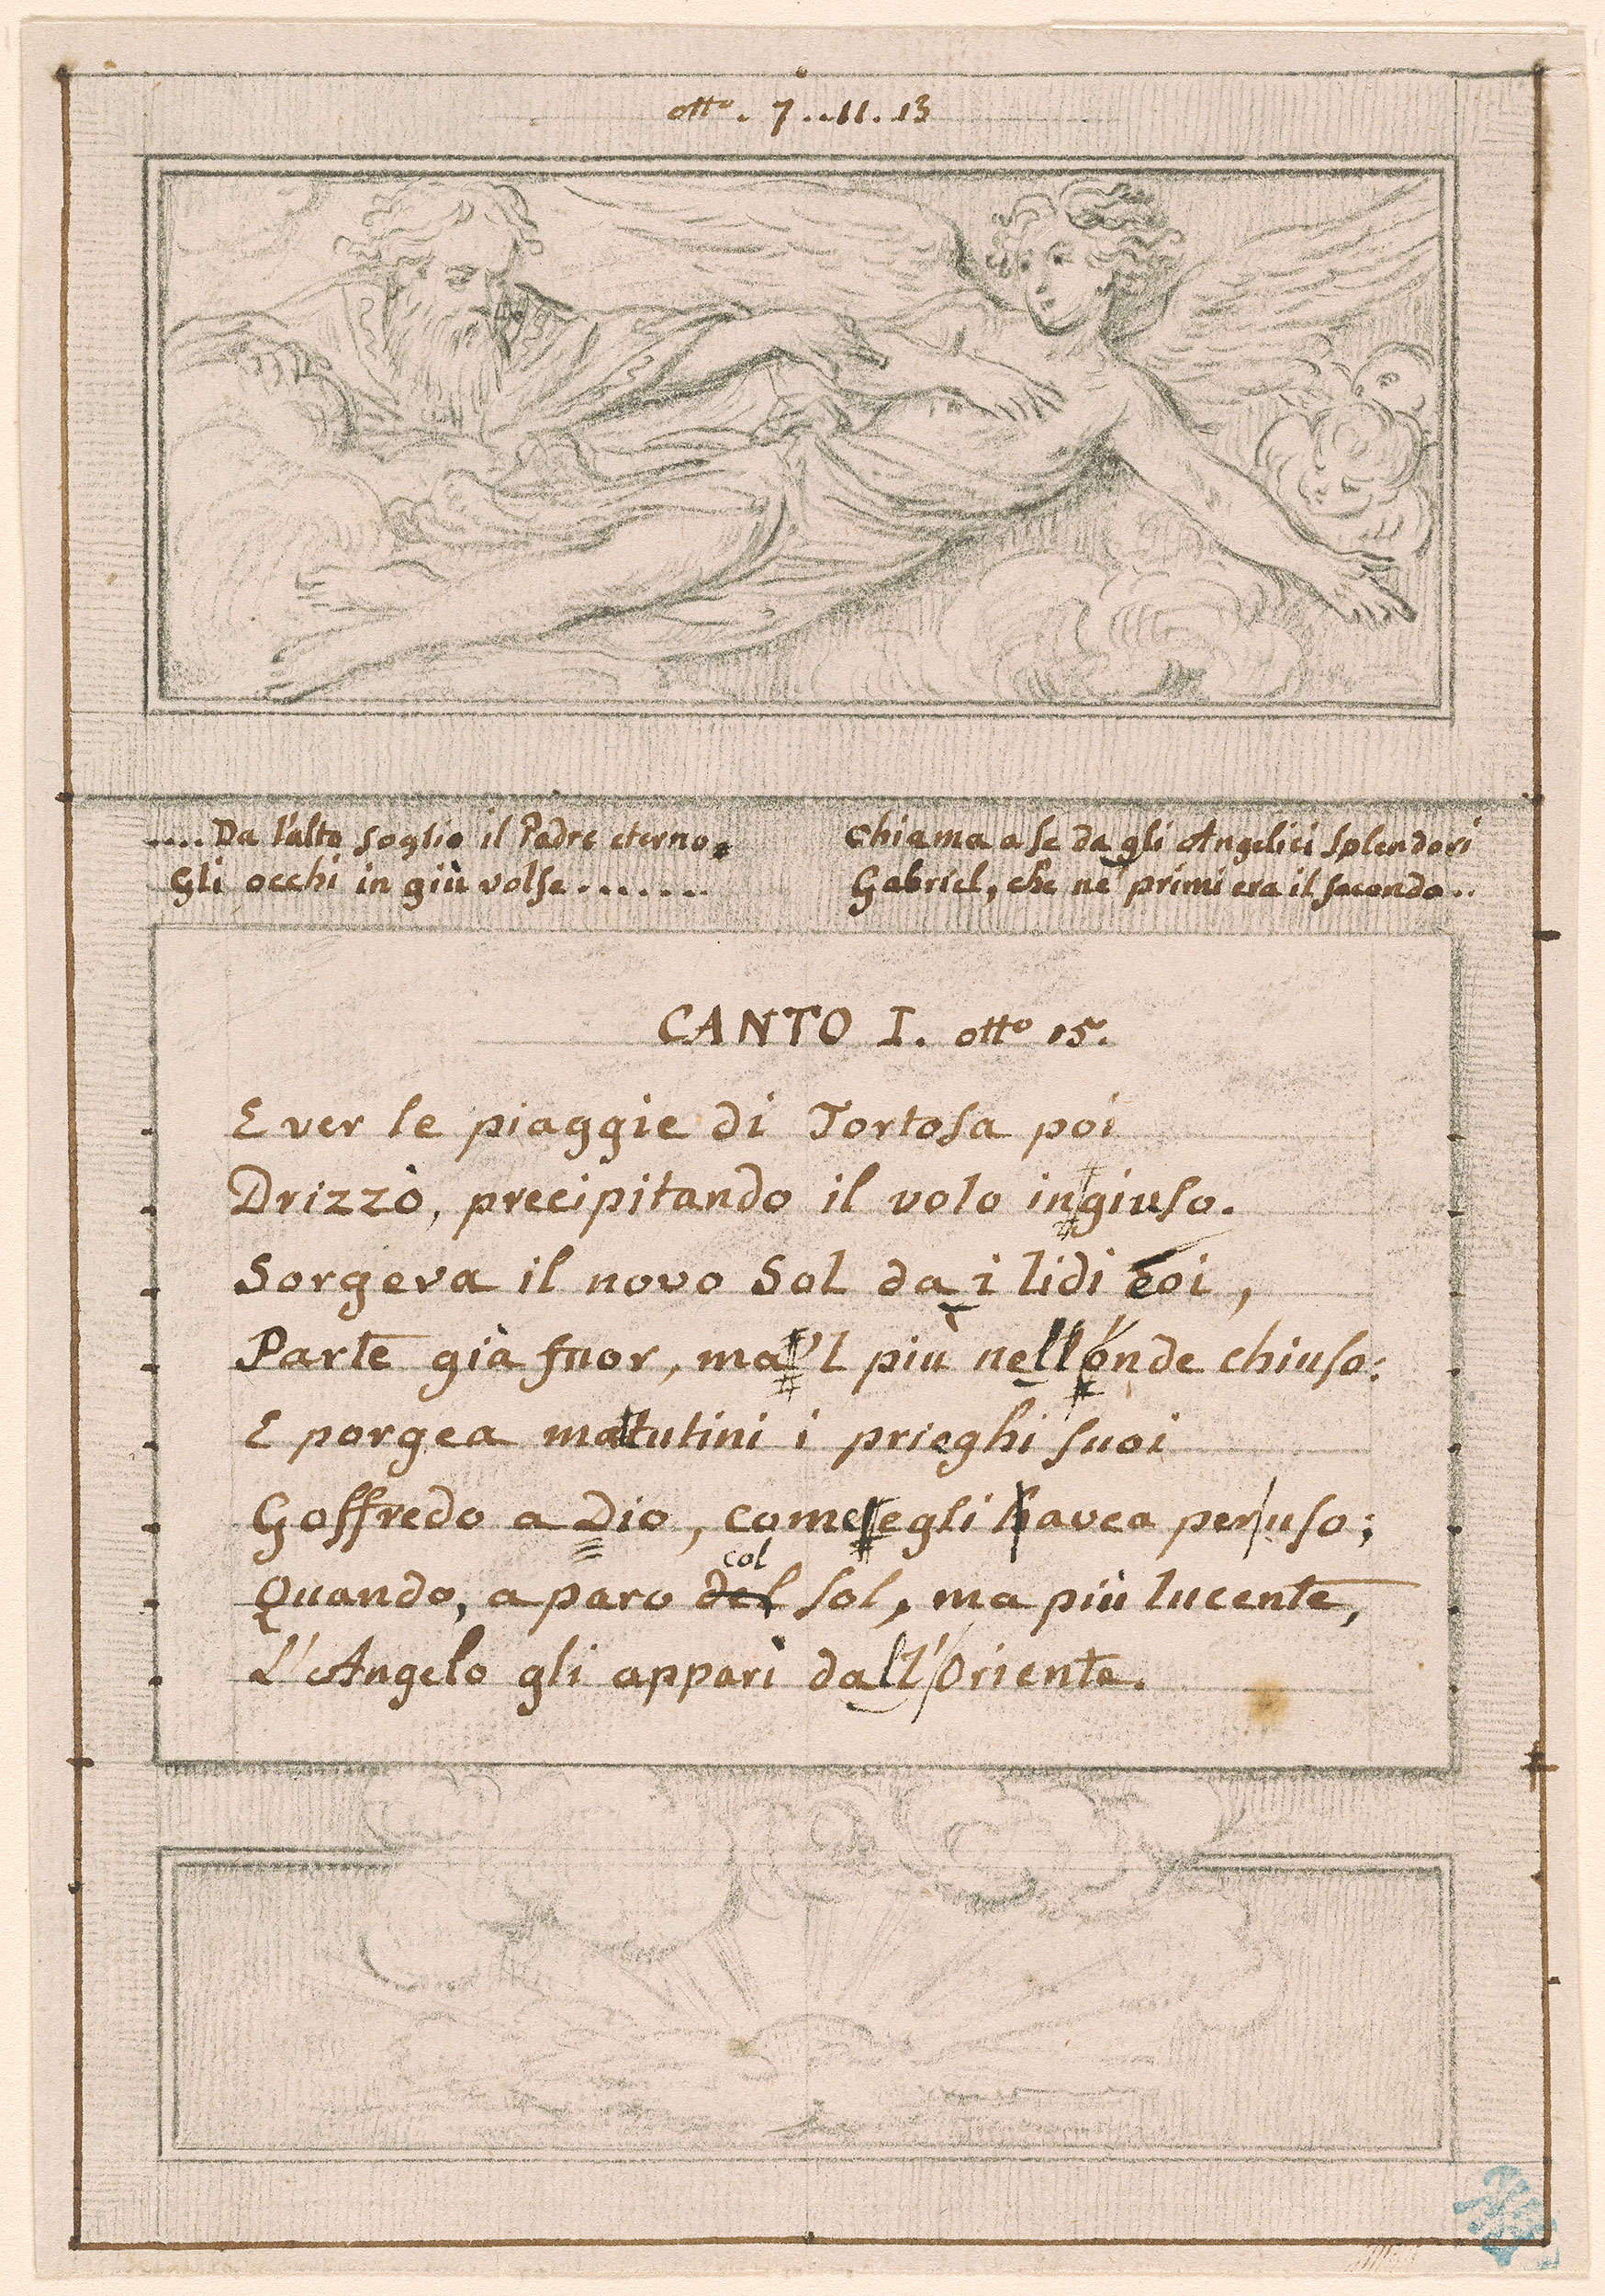 otto. 7..11.13
....Da l'alto soglio il Padre eterno.
Gli occhi in giù volse.......
Chiama a se da gli Angelici splendori
Gabriel, che ne' primi era il secondo..
CANTO I. otto 15.
E ver le piaggie di Tortosa poi
Drizzò, precipitando il volo in giuso.
Sorgeva il novo Sol da i lidi eoi,
Parte già fuor, ma 'l più nell' onde chiuso:
E porgea matutini i prieghi suoi
Goffredo a Dio, come egli havea per uso;
col
Quando, a paro del sol, ma più lucente,
L'Angelo gli apparì dall' Oriente.